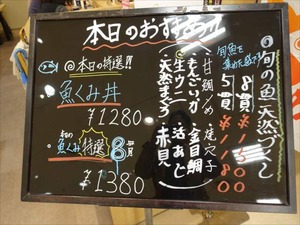 本日のおすすめ!!
@本日の特選!!
魚くみ丼
¥1280
魚くみ特選8貫
¥1380
旬の魚天然づくし
旬魚を集めた盛り
8貫 ¥1500
5貫 ¥1180
甘鯛 〆め 煮穴子
もんごいか 金目鯛
生ウニ 活あじ
天然まぐろ 赤貝